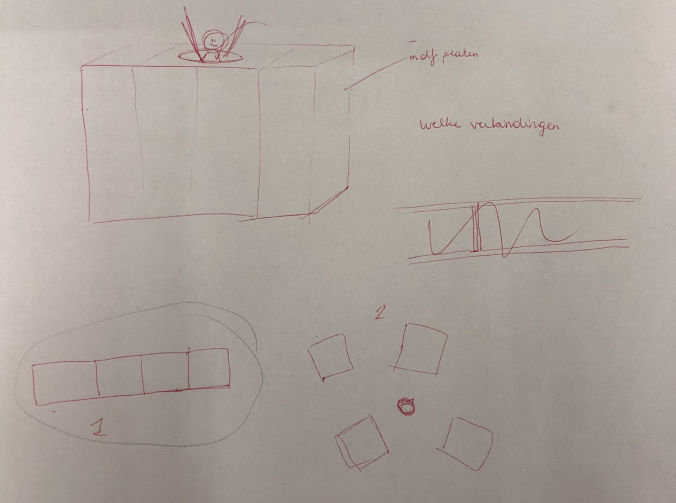 mdf platen
welke verbindingen
2
1